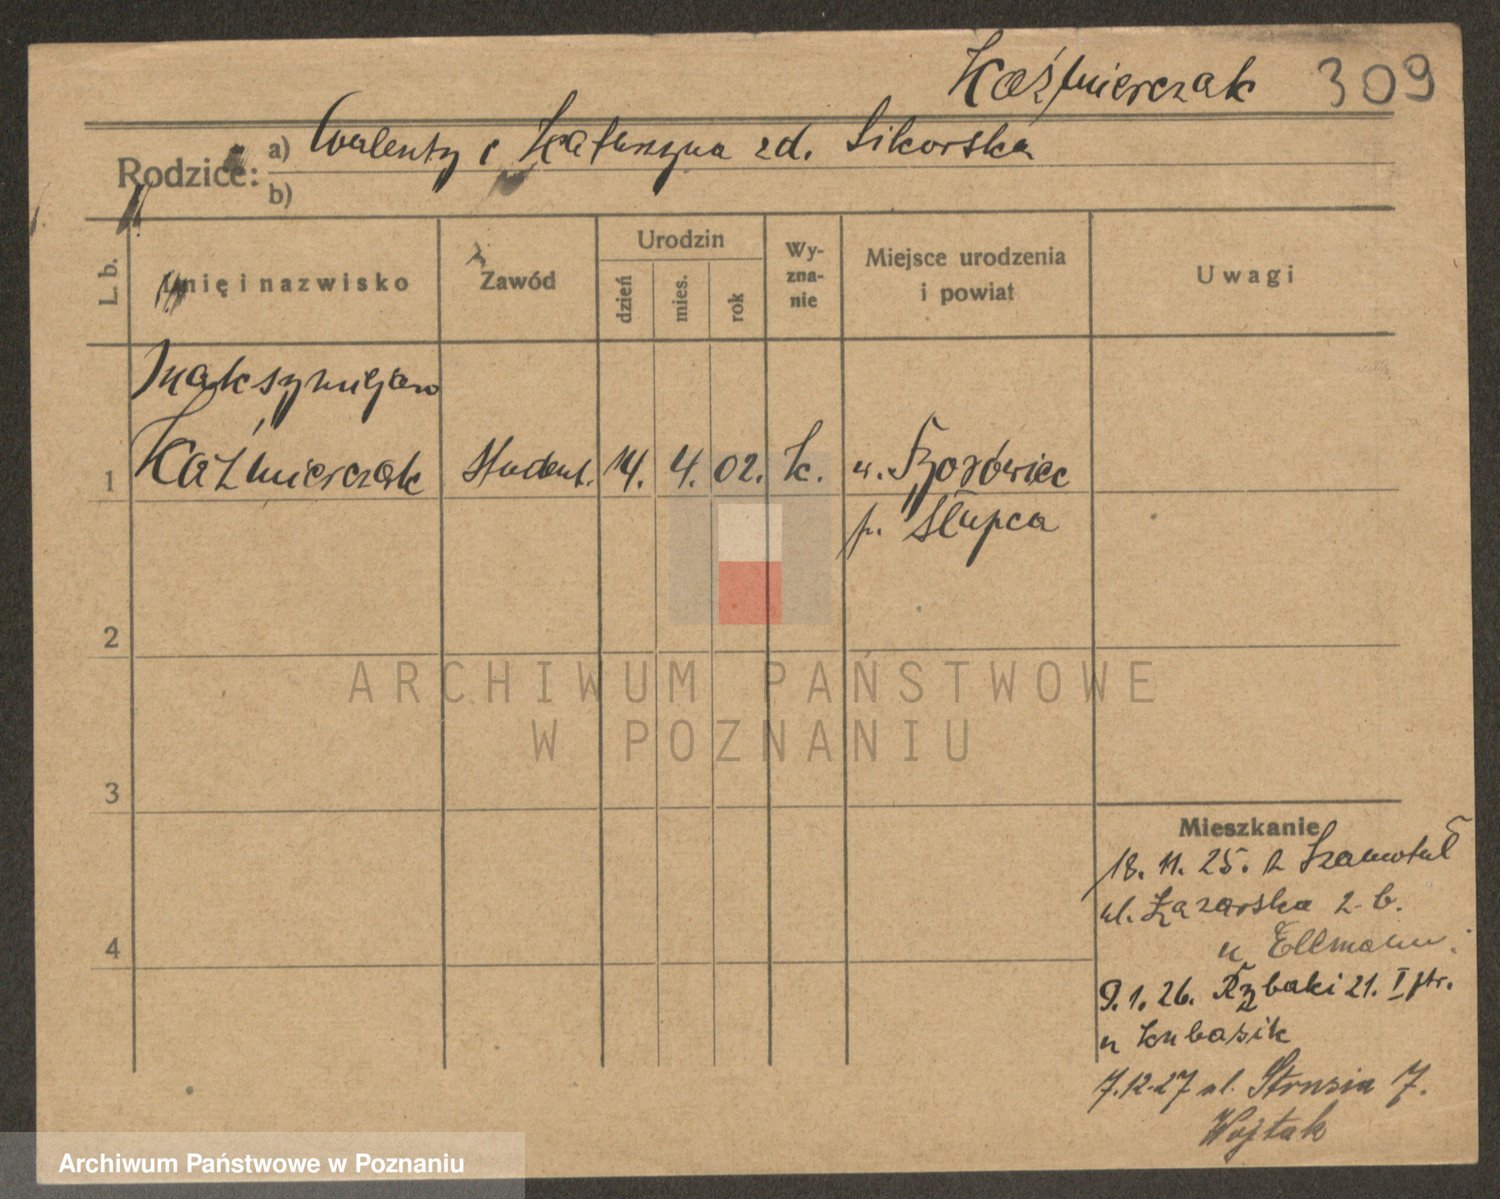 Kaźmierczak 309
Rodzice: a) Walenty i Katarzyna zd. Sikorska
b)
L. b.
Imię i nazwisko
Zawód
Urodzin
dzień
mies.
rok
Wy-
zna-
nie
Miejsce urodzenia
i powiat
Uwagi
Maksymiljan
1 Kaźmierczak Student. 14. 4. 02. k. w.
p. Słupca
2
3
4
Mieszkanie
18. 11. 25. z Szamotuł
ul. Łazarska 2 b.
u Ellmann.
9. 1. 26. Rybaki 21. I ptr.
u Kubasik
7.12.27 ul. Strusia 7.
Wojtak
ARCHIWUM PAŃSTWOWE
W POZNANIU
Archiwum Państwowe w Poznaniu